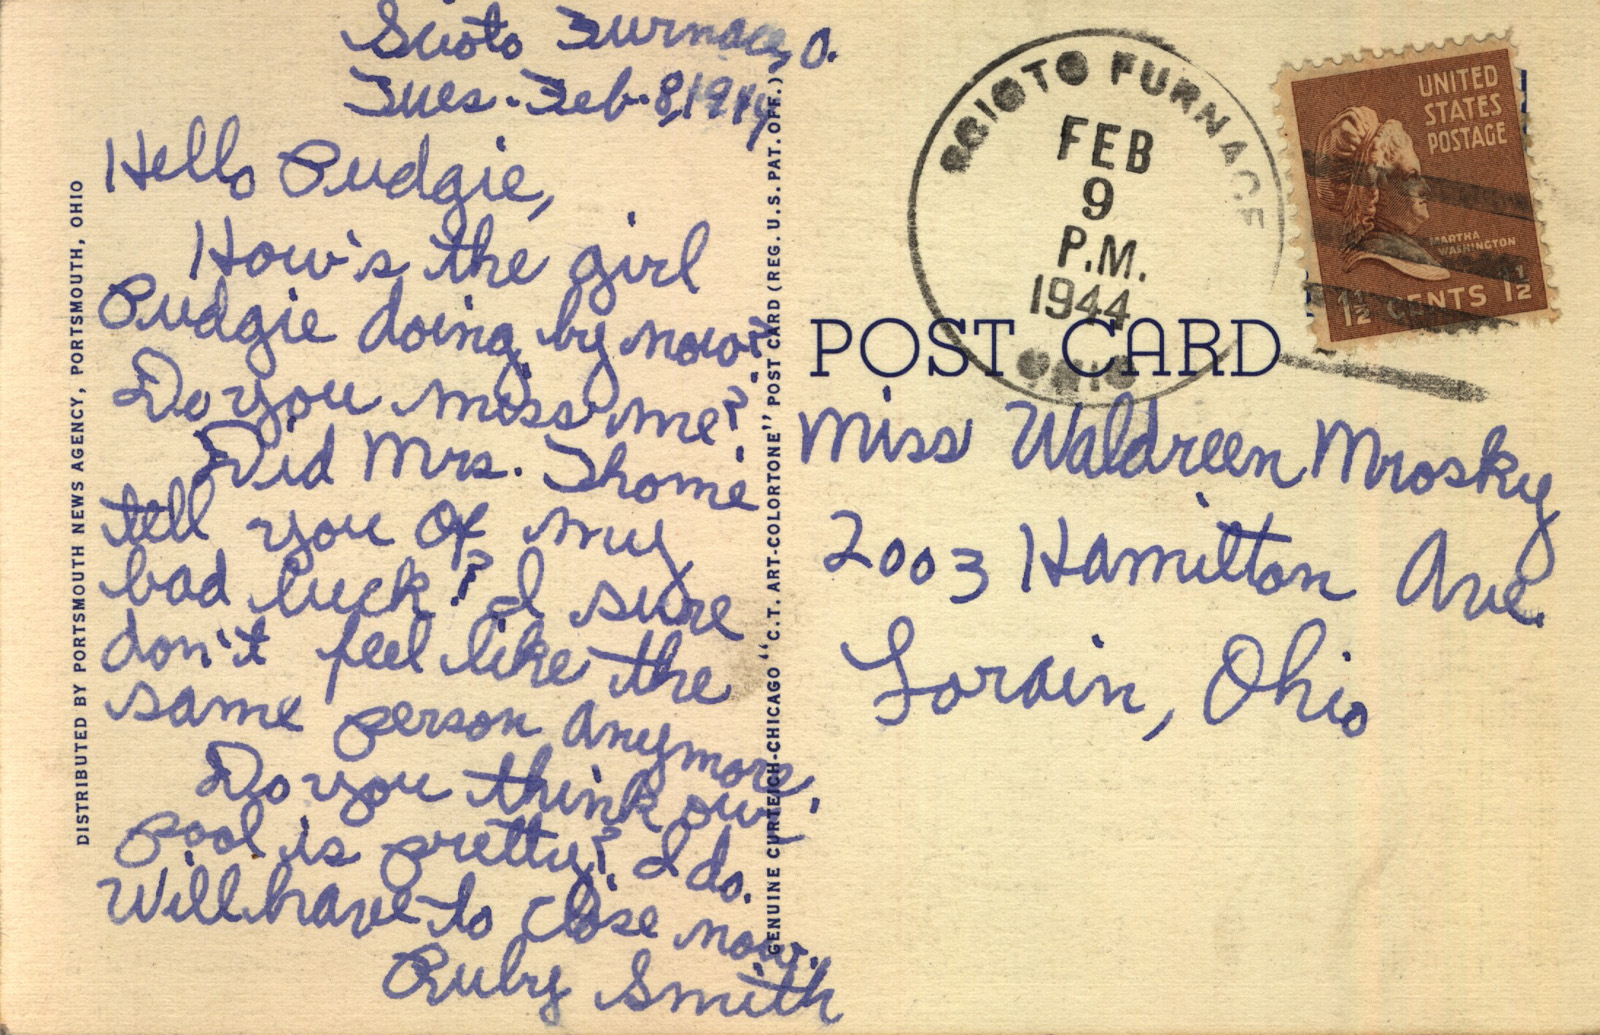 Scioto Furnace, O.
Tues. Feb. 8, 1944
Hello Pudgie,
How's the girl
Pudgie doing by now?
Do you miss me?
Did Mrs. Thome
tell you of my
bad luck? I sure
don't feel like the
same person anymore.
Do you think our
pool is pretty? I do.
Will have to close now.
Ruby Smith
DISTRIBUTED BY PORTSMOUTH NEWS AGENCY, PORTSMOUTH, OHIO
GENUINE CURTEICH-CHICAGO "C.T. ART-COLORTONE" POST CARD (REG. U.S. PAT. OFF.)
SCIOTO FURNACE
FEB
9
P.M.
1944
OHIO
UNITED
STATES
POSTAGE
MARTHA
WASHINGTON
1½ CENTS 1½
POST CARD
Miss Waldreen Mrosky
2003 Hamilton Ave.
Lorain, Ohio